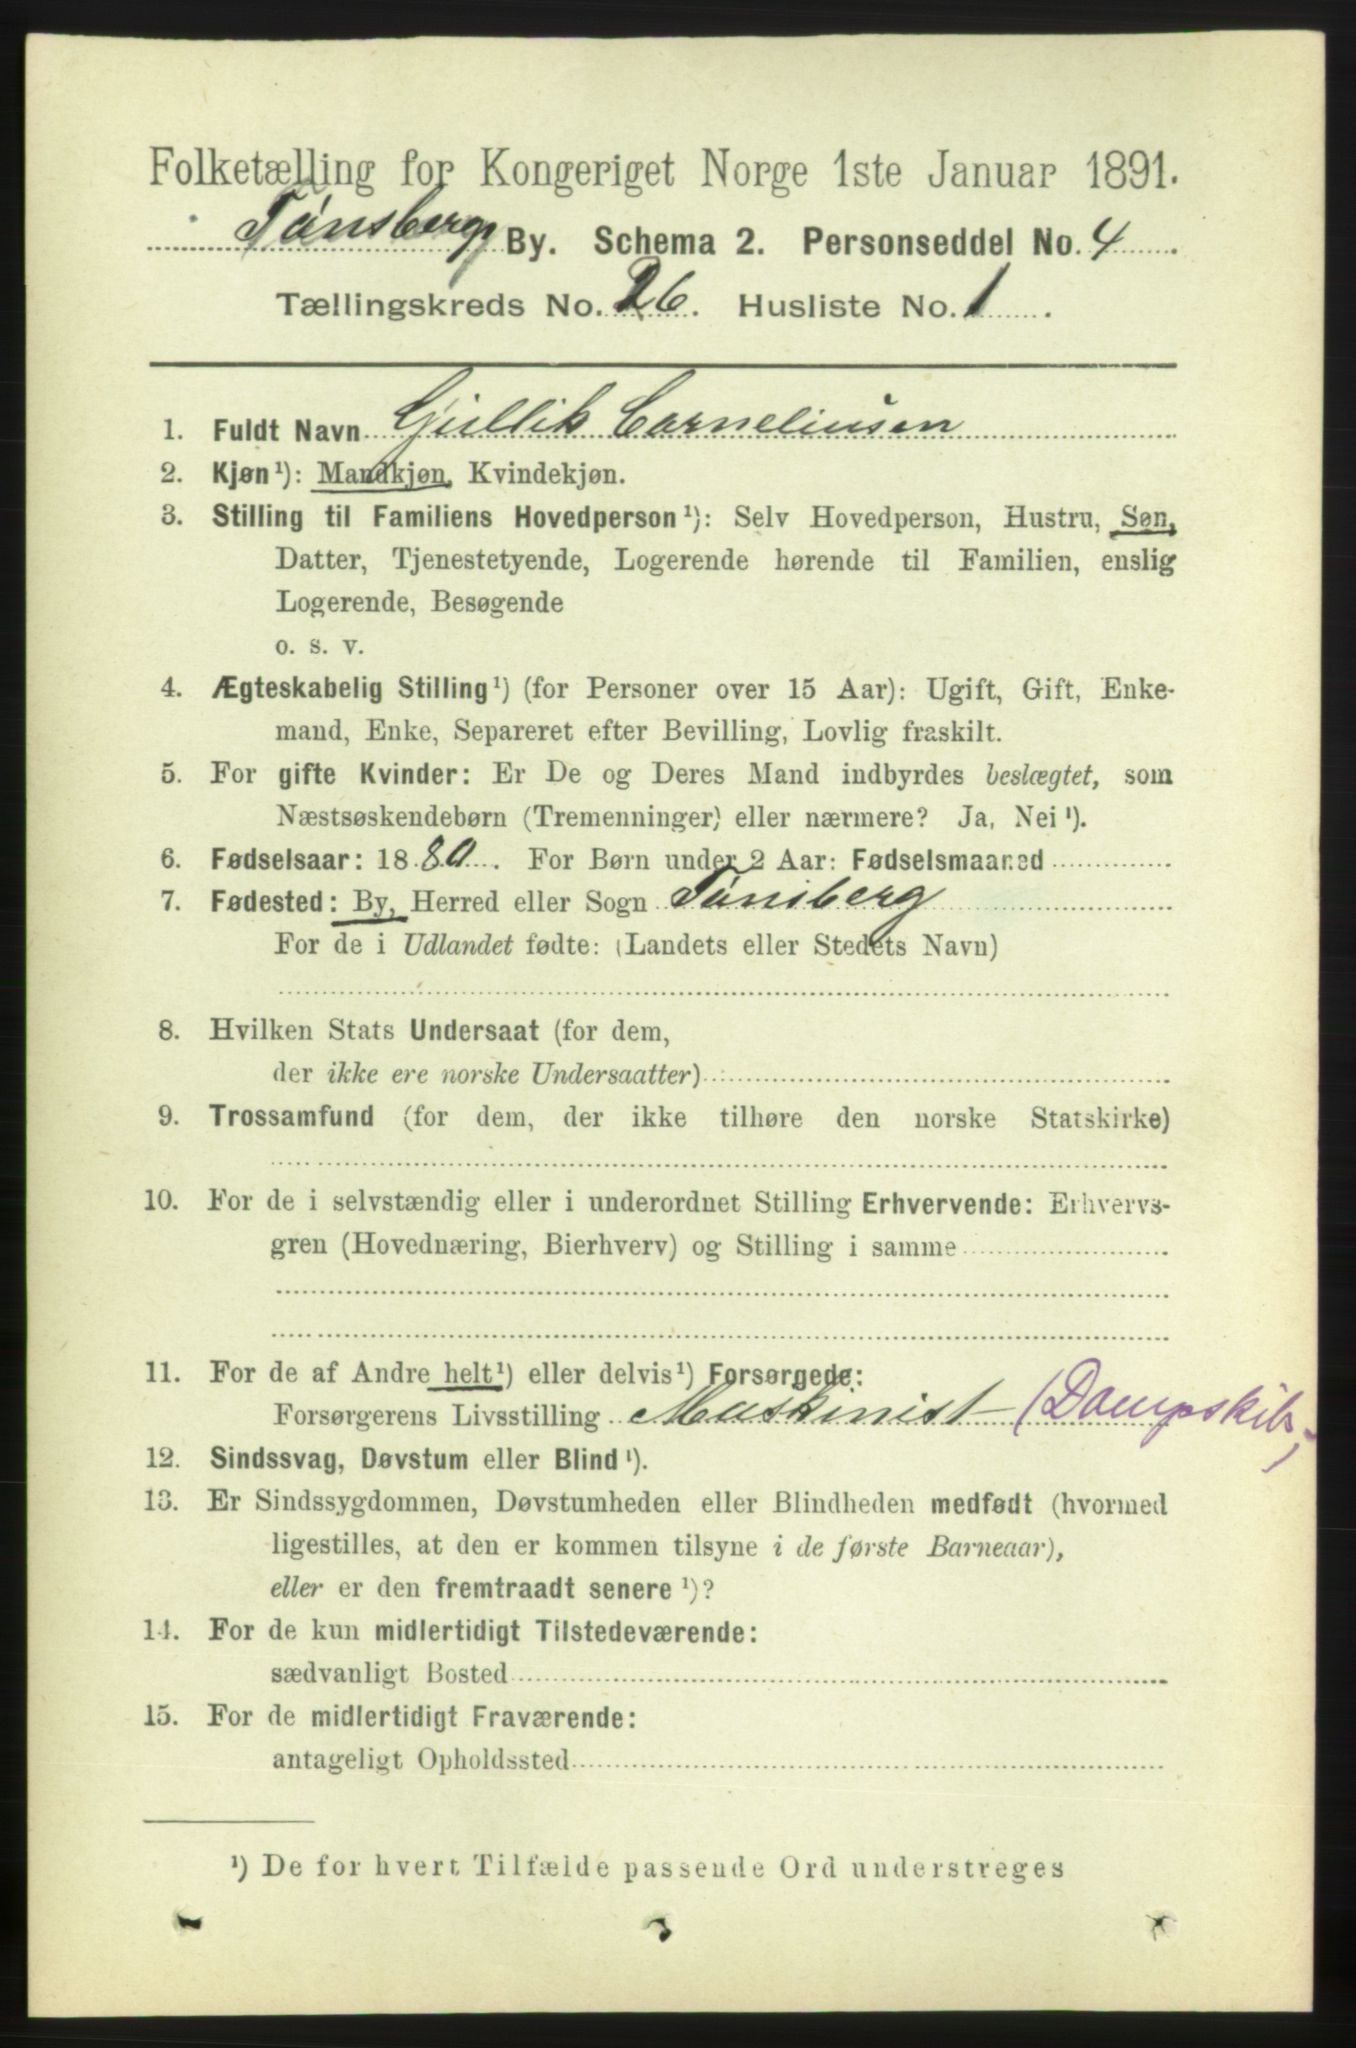 Folketælling for Kongeriget Norge 1ste Januar 1891.
Tønsberg By. Schema 2. Personseddel No. 4
Tællingskreds No. 26. Husliste No. 1.
1. Fuldt Navn Gullik Corneliusen
2. Kjøn¹): Mandkjøn, Kvindekjøn.
3. Stilling til Familiens Hovedperson¹): Selv Hovedperson, Hustru, Søn,
Datter, Tjenestetyende, Logerende hørende til Familien, enslig
Logerende, Besøgende
o. s. v.
4. Ægteskabelig Stilling¹) (for Personer over 15 Aar): Ugift, Gift, Enke-
mand, Enke, Separeret efter Bevilling, Lovlig fraskilt.
5. For gifte Kvinder: Er De og Deres Mand indbyrdes beslægtet, som
Næstsøskendebørn (Tremenninger) eller nærmere? Ja, Nei¹).
6. Fødselsaar: 1880. For Børn under 2 Aar: Fødselsmaaned
7. Fødested: By, Herred eller Sogn Tønsberg
For de i Udlandet fødte: (Landets eller Stedets Navn)
8. Hvilken Stats Undersaat (for dem,
der ikke ere norske Undersaatter)
9. Trossamfund (for dem, der ikke tilhøre den norske Statskirke)
10. For de i selvstændig eller i underordnet Stilling Erhvervende: Erhvervs-
gren (Hovednæring, Bierhverv) og Stilling i samme
11. For de af Andre helt¹) eller delvis¹) Forsørgede:
Forsørgerens Livsstilling Maskinist (Dampskibs)
12. Sindssvag, Døvstum eller Blind¹).
13. Er Sindssygdommen, Døvstumheden eller Blindheden medfødt (hvormed
ligestilles, at den er kommen tilsyne i de første Barneaar),
eller er den fremtraadt senere¹)?
14. For de kun midlertidigt Tilstedeværende:
sædvanligt Bosted
15. For de midlertidigt Fraværende:
antageligt Opholdssted
¹) De for hvert Tilfælde passende Ord understreges